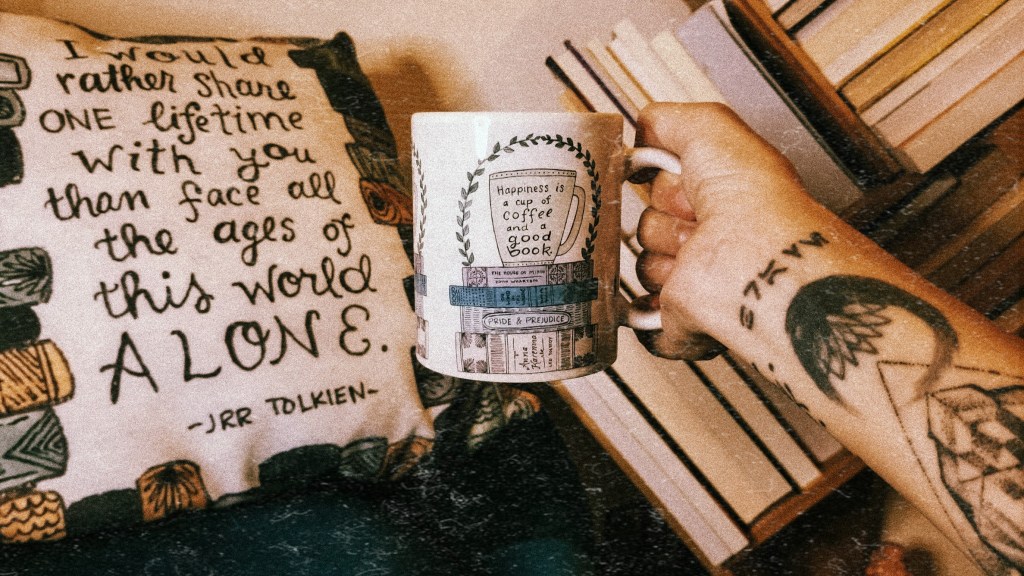 I would
rather share
ONE lifetime
with you
than face all
the ages of
this world
ALONE.
-JRR TOLKIEN-
Happiness is
a cup of
coffee
and a
good
book.
THE HOUSE OF MIRTH
EDITH WHARTON
PRIDE & PREJUDICE
Anna
Karenina